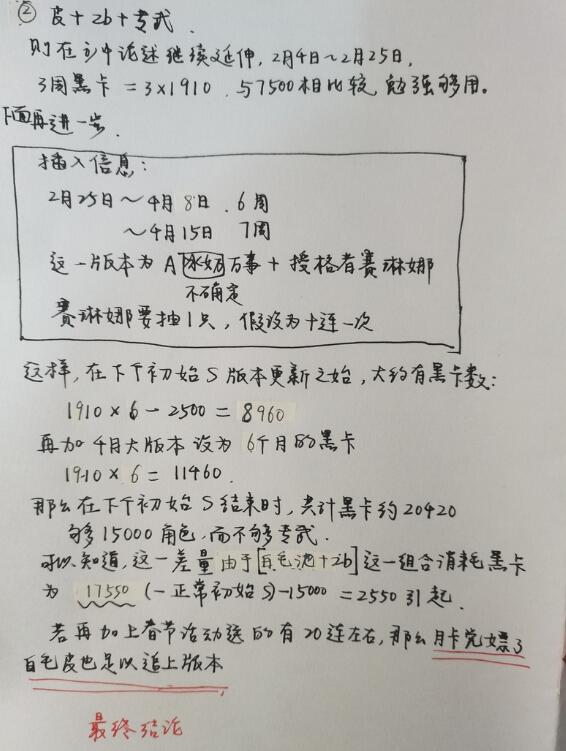 ② 皮+2b+专武.
则在①中论述继续延伸, 2月4日~2月25日,
3周黑卡 = 3×1910. 与7500相比较, 勉强够用。
下面再进一步.
插入信息:
2月25日~4月8日. 6周
~4月15日 7周
这一版本为A 万事+授格者赛琳娜
不确定
赛琳娜要抽1只, 假设为十连一次
这样, 在下个初始S版本更新之始, 大约有黑卡数:
1910×6-2500=8960
再加4月大版本设为6个月的黑卡
1910×6=11460.
那么在下个初始S结束时, 共计黑卡约20420
够15000角色, 而不够专武.
可以知道, 这一差量由于[白毛池+2b]这一组合消耗黑卡
为 17550 (一正常初始S)-15000=2550引起.
若再加上春节活动送的有20连左右, 那么月卡党嫖了
白毛皮也足以追上版本
最终结论